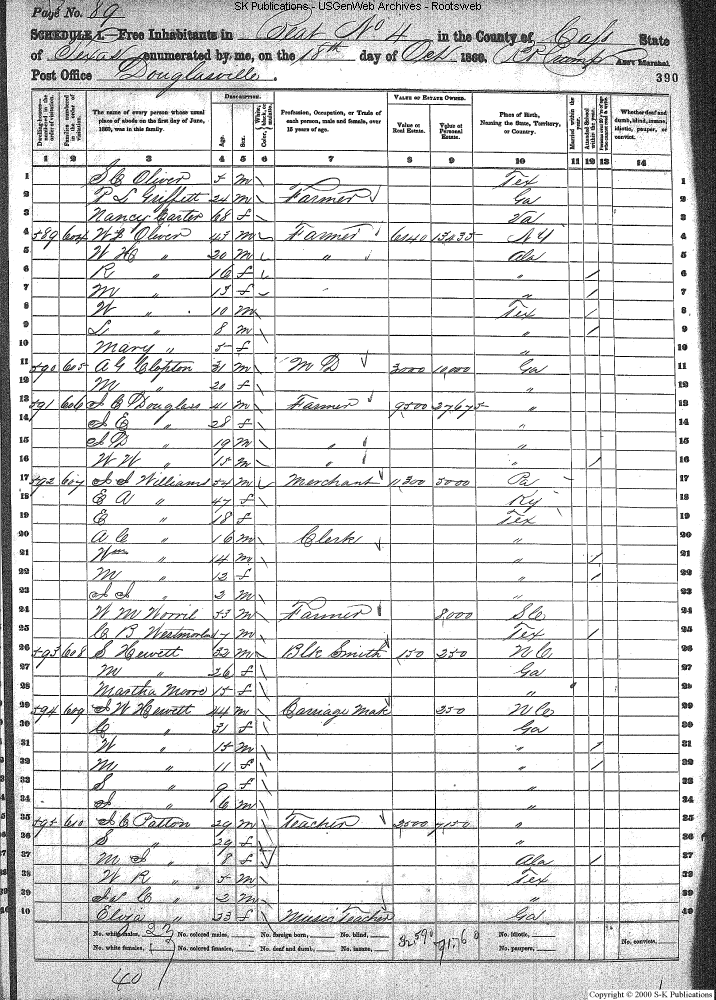 SK Publications - USGenWeb Archives - Rootsweb
Page No. 89
SCHEDULE 1.—Free Inhabitants in Beat No 4 in the County of Cass State
of Texas enumerated by me, on the 18th day of Oct 1860. Ass't Marshal.
Post Office Douglasville. 390
Dwelling-houses—numbered in the order of visitation. Families numbered in the order of visitation. The name of every person whose usual place of abode on the first day of June, 1860, was in this family. DESCRIPTION. Age. Sex. Color, White, black, or mulatto. Profession, Occupation, or Trade of each person, male and female, over 15 years of age. VALUE OF ESTATE OWNED. Value of Real Estate. Value of Personal Estate. Place of Birth, Naming the State, Territory, or Country. Married within the year. Attended School within the year. Whether deaf and dumb, blind, insane, idiotic, pauper, or convict.
1 2 3 4 5 6 7 8 9 10 11 12 13 14
1 S C Oliver m \ Tex 1
2 P L Griffett 24 m \ Farmer Ga 2
3 Nancy Carter 68 f \ Va 3
4 589 604 Oliver 43 m Farmer 6140 N Y 4
5 W H " 20 m " Ala 5
6 R " 16 f " / 6
7 M " 13 f " / 7
8 W " 10 m Tex / 8
9 L " 8 m \ " / 9
10 Mary " 5 f \ " 10
11 590 605 A G Clopton 31 m \ M D 3000 10,000 Ga 11
12 M " 20 f \ " 12
13 591 606 J C Douglass 41 m \ Farmer 9500 27675 " 13
14 J E " 28 f \ " 14
15 J D " 19 m \ " " 15
16 W W " 15 m \ " " / 16
17 592 607 J J Williams 54 m Merchant 11,300 5000 Pa 17
18 E A " 47 f \ Ky 18
19 E " 18 f Tex 19
20 A C " 16 m Clerk " 20
21 Wm " 14 m " / 21
22 M " 12 f " / 22
23 J J " 2 m " 23
24 W M Worril 53 m \ Farmer 8,000 S C 24
25 C B Westmorland 7 m \ Tex / 25
26 593 608 S Hewett 32 m \ Blk Smith 150 250 N C 26
27 M " 26 f \ Ga 27
28 Martha Moore 15 f \ " 28
29 594 609 J W Hewett 44 m \ Carriage Mak 250 N C 29
30 C " 31 f \ Ga 30
31 W " 15 m \ " / 31
32 M " 11 f \ " / 32
33 S " 9 f \ " 33
34 J " 6 m \ " 34
35 595 610 J C Patton 29 m \ Teacher 2500 7150 " 35
36 S " 29 f \ " 36
37 M J " 8 f Ala / 37
38 W R " 5 m \ Tex 38
39 C " 2 m \ " 39
40 Elvza " 23 f \ Music Teacher Ga 40
No. white males, 23 No. colored males, No. foreign born, No. blind, No. idiotic,
No. white females, 17 No. colored females, No. deaf and dumb, No. insane, No. paupers, No. convicts,
40
Copyright © 2000 S-K Publications